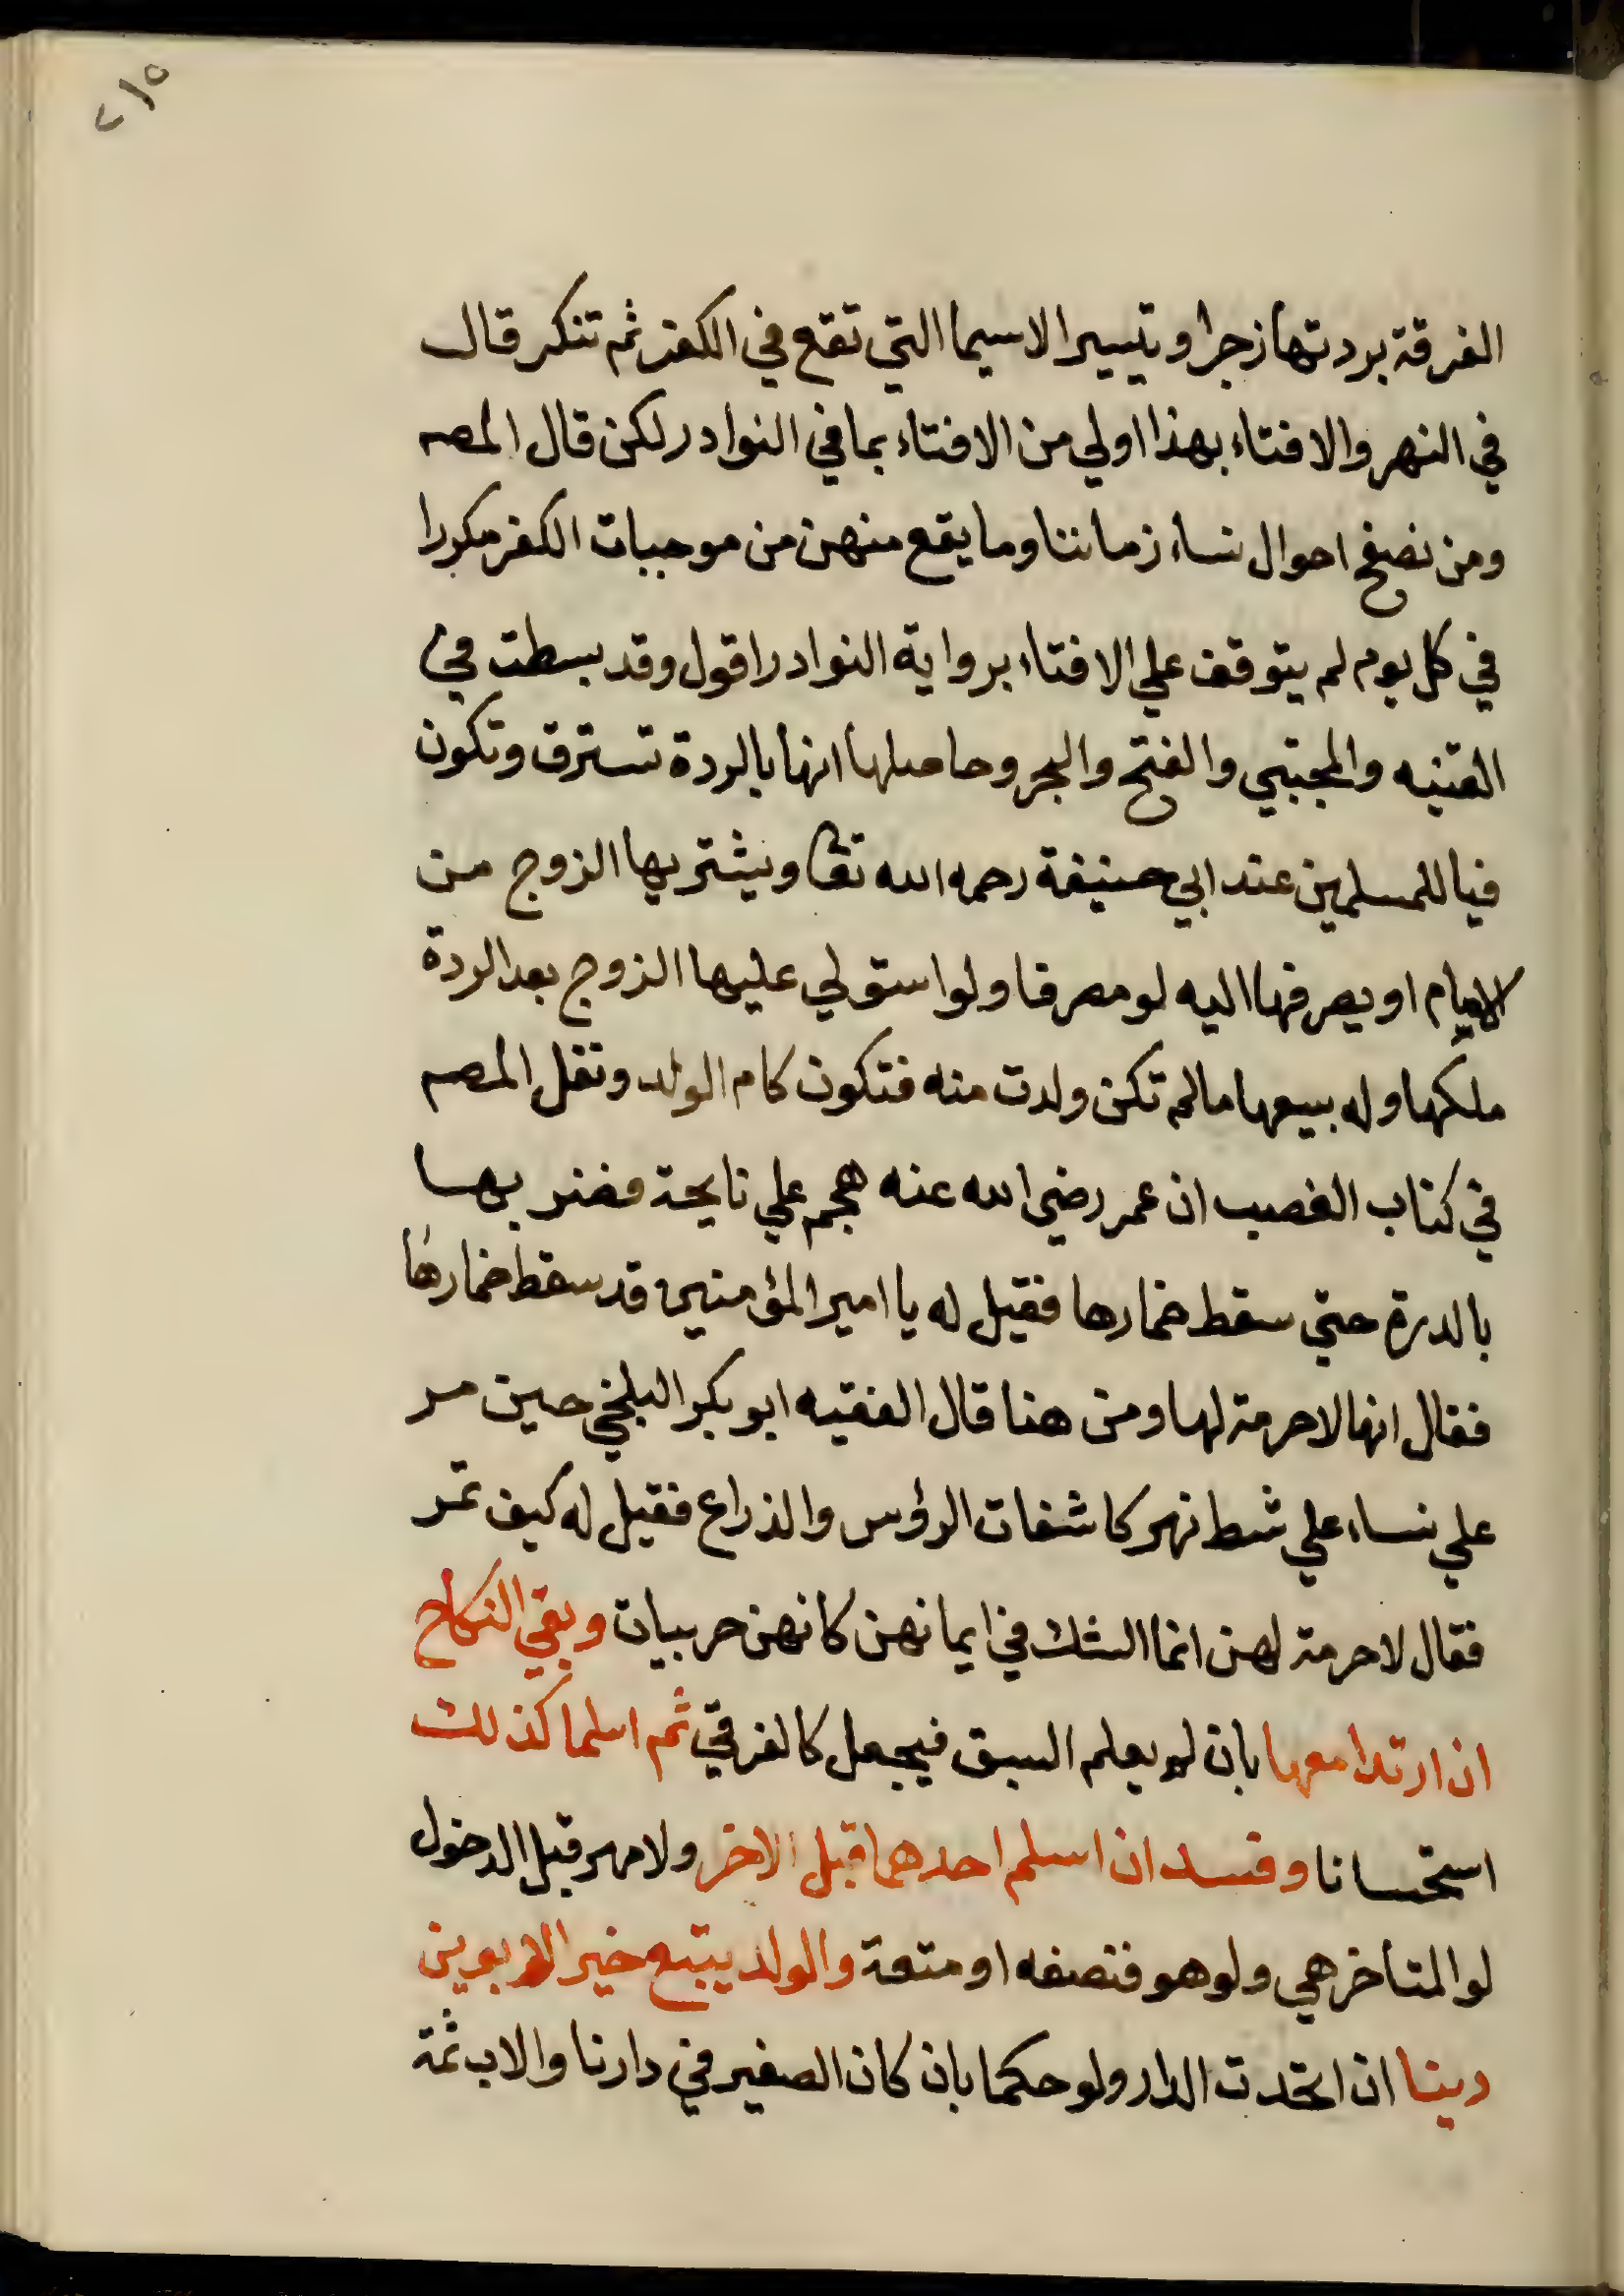 ٢١٥
الفرقة بردتها زجرا وتيسيرا لاسيما التي تقع في الكفر ثم تنكر قال
في النهر والافتاء بهذا اولي من الافتاء بما في النوادر لكن قال المصـ
ومن تصفح احوال نساء زماننا وما يقع منهن من موجبات الكفر مكررا
في كل يوم لم يتوقف علي الافتاء برواية النوادر اقول وقد بسطت في
القنيه والمجتبي والفتح والبحر وحاصلها انها بالردة تسترق وتكون
فيا للمسلمين عند ابي حنيفة رحمه الله تعا ويشتريها الزوج من
الامام او يصرفها اليه لو مصرفا ولو استولي عليها الزوج بعد الردة
ملكها وله بيعها مالم تكن ولدت منه فتكون كام الولد ونقل المصـ
في كتاب الغصب ان عمر رضي الله عنه هجم علي نايحة فضربها
بالدرة حتي سقط خمارها فقيل له يا امير المؤمنين قد سقط خمارها
فقال انها لا حرمة لها ومن هنا قال الفقيه ابو بكر البلخي حين مر
علي نساء علي شط نهر كاشفات الرؤس والذراع فقيل له كيف تمر
فقال لا حرمة لهن انما الشك في ايمانهن كانهن حربيات وبقي النكاح
ان ارتدا معها بان لم يعلم السبق فيجعل كالغرقي ثم اسلما كذلك
استحسانا وفسد ان اسلم احدهما قبل الاخر ولا مهر قبل الدخول
لو المتاخر هي ولو هو فنصفه او متعة والولد يتبع خير الابوين
دينا ان اتحدت الدار ولو حكما بان كان الصغير في دارنا والاب ثمة